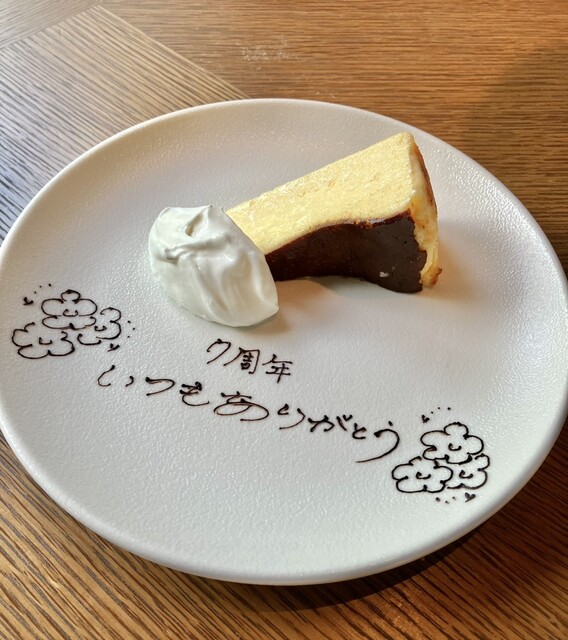 7周年
いつもありがとう